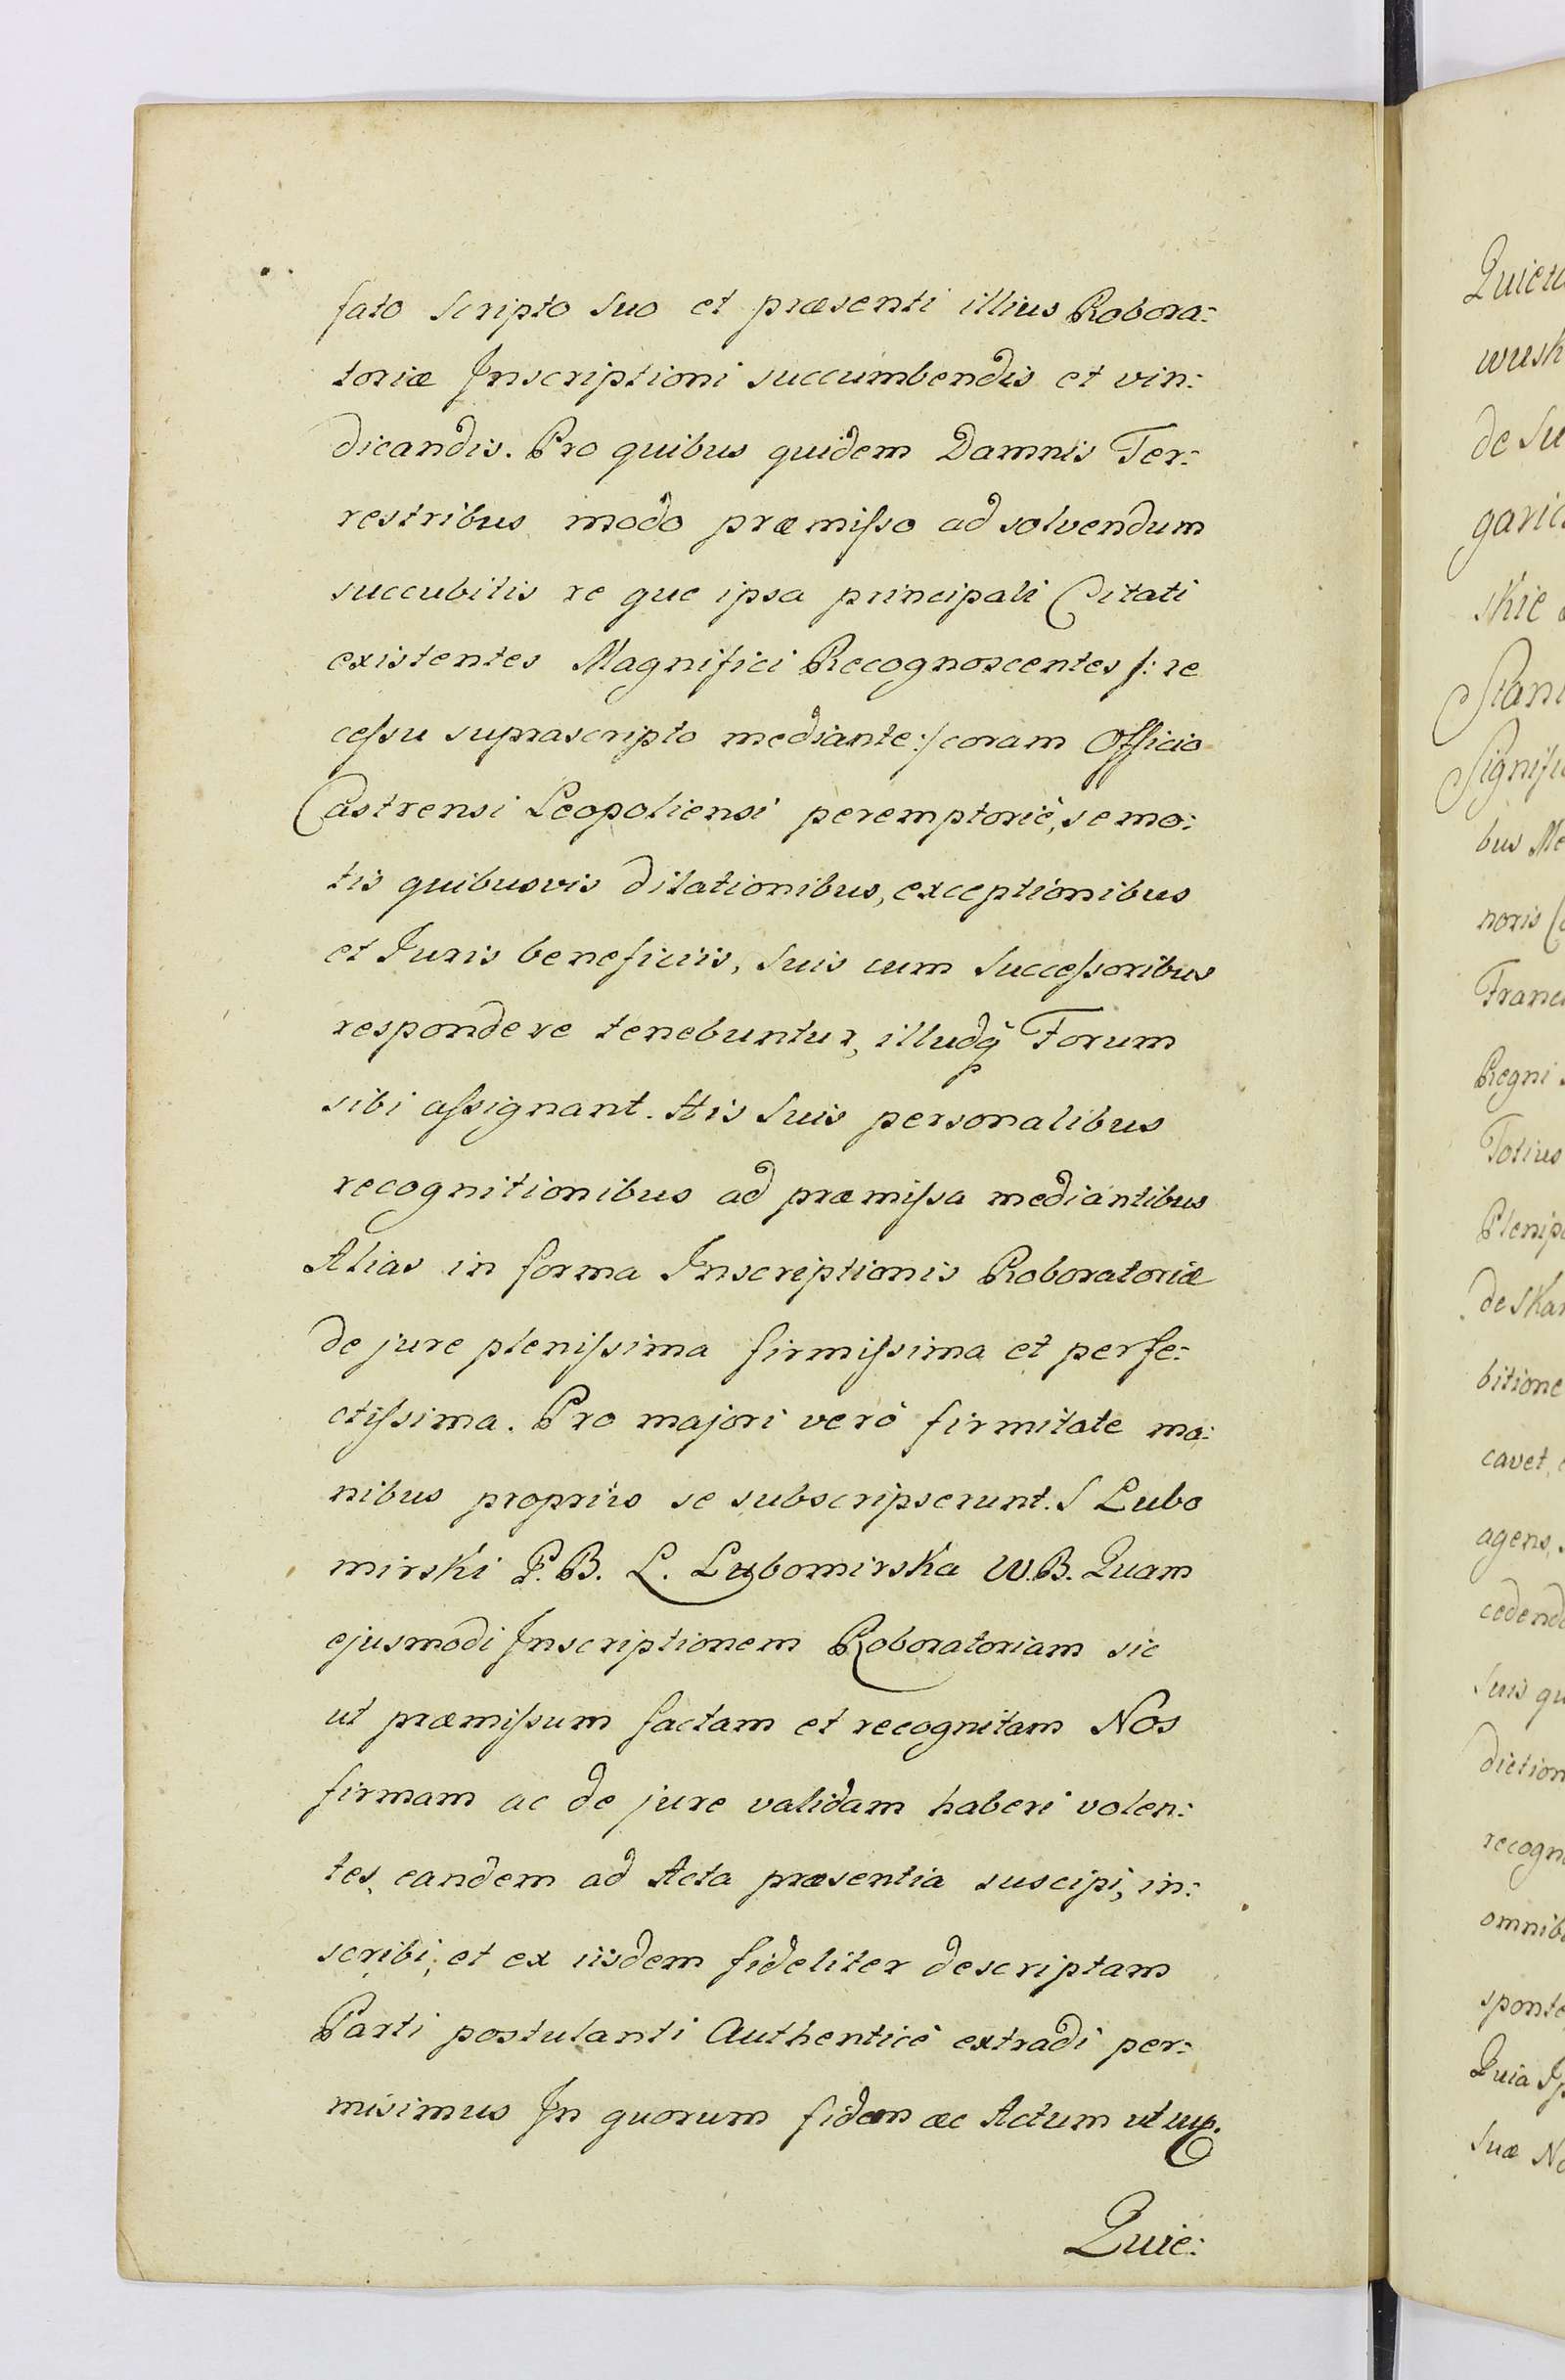 fato scripto suo et præsenti illius Robora:
toriæ Inscriptioni succumbendis et vin:
dicandis. Pro quibus quidem Damnis Ter:
restribus modo præmiſso ad solvendum
succubitis re que ipsa principali Citati
existentes Magnifici Recognoscentes /: re
ceſsu suprascripto mediante :/ coram Officio
Castrensi Leopoliensi peremptoriè, semo:
tis quibusvis dilationibus, exceptionibus
et Juris beneficiis, suis cum Succeſsoribus
respondere tenebuntur, illudq Forum
sibi aſsignant. His suis personalibus
recognitionibus ad præmiſsa mediantibus
Alias in forma Inscriptionis Roboratoriæ
de jure pleniſsima firmiſsima et perfe:
ctiſsima. Pro majori verò firmitate ma:
nibus propriis se subscripserunt. S Lubo
mirski P.B. L. Lubomirska W.B. Quam
ejusmodi Inscriptionem Roboratoriam sic
ut præmiſsum factam et recognitam Nos
firmam ac de jure validam haberi volen:
tes, eandem ad Acta præsentia suscipi, in:
scribi, et ex iisdem fideliter descriptam
Parti postulanti Authenticè extradi per:
misimus In quorum fidem ac Actum ut sup.
Quie:
Quieta
wusk
de Su
garic
skie
Stani
Signifi
bus Me
noris
Franc
Regni
Totius
Plenip
de Skar
bitione
cavet
agens
cedend
suis qu
diction
recogn
omnib
sponte
Quia Ip
suæ No